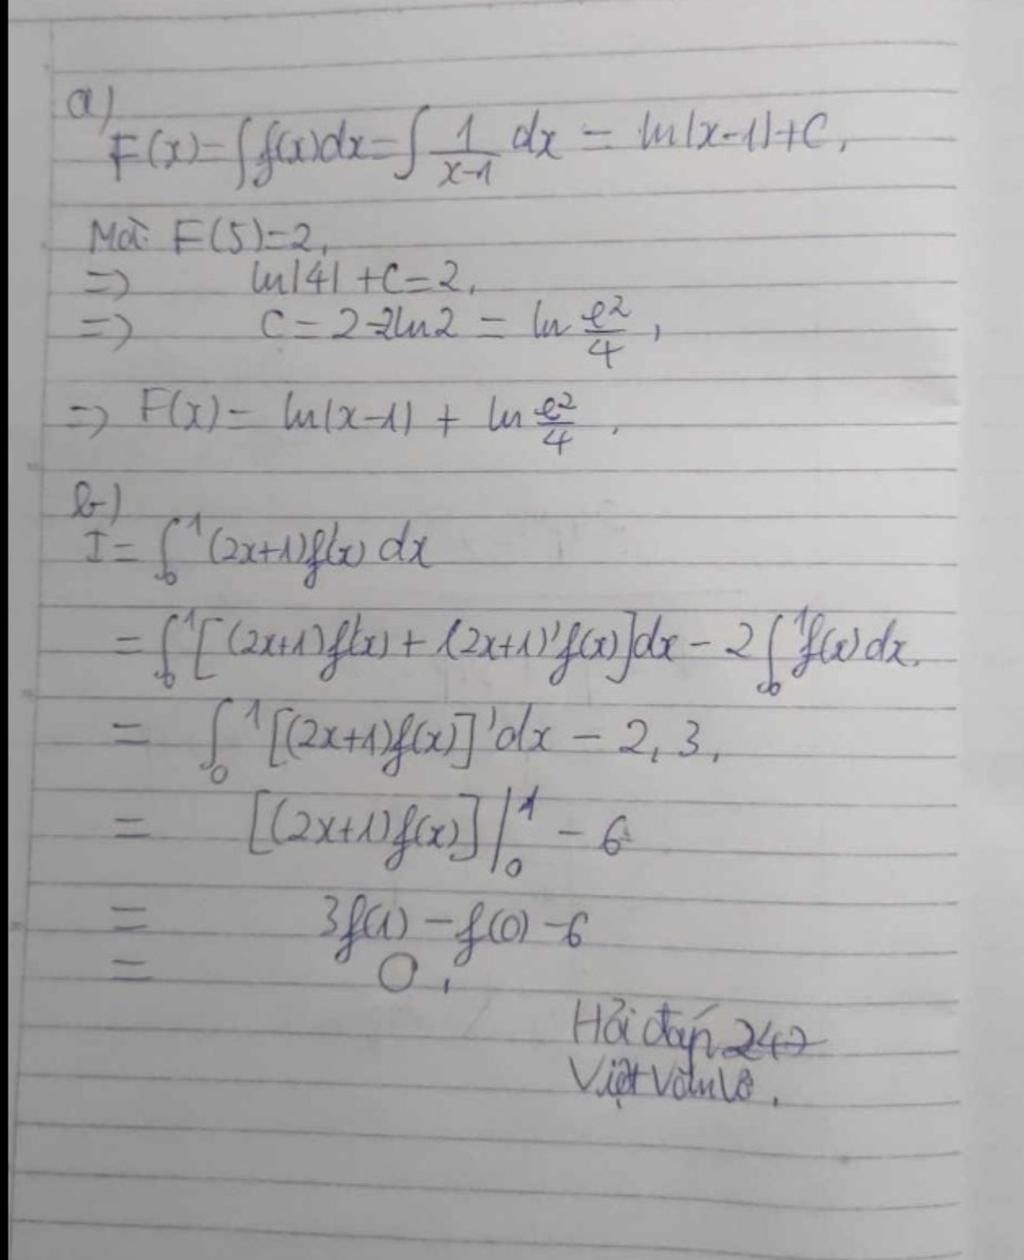 a)
F(x)=∫f(x)dx=∫ 1/(x-1) dx = ln|x-1|+C,
Mà: F(5)=2,
=> ln|4| + C=2,
=> C = 2-2ln2 = ln e²/4,
=> F(x) = ln|x-1| + ln e²/4.
b)
I= ∫₀¹ (2x+1)f'(x) dx
= ∫₀¹ [(2x+1)f'(x) + (2x+1)'f(x)]dx - 2∫₀¹ f(x)dx.
= ∫₀¹ [(2x+1)f(x)]'dx - 2,3,
= [(2x+1)f(x)]|₀¹ - 6
= 3f(1) - f(0) - 6
= 0,
Hỏi đáp 247